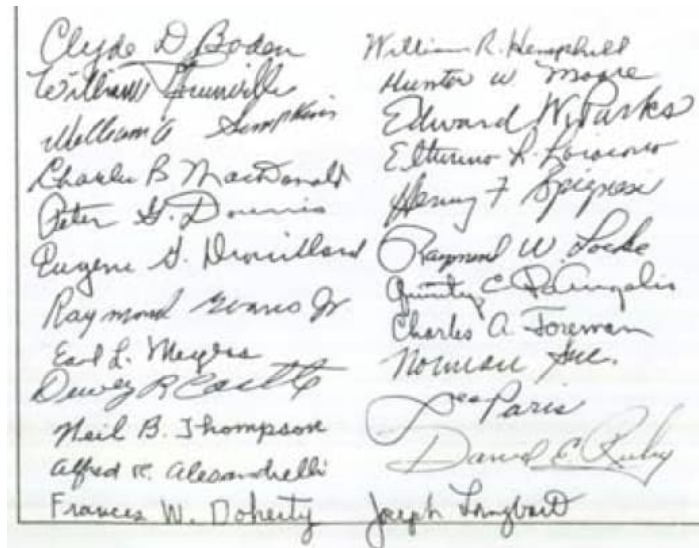 Clyde D Boden
William
William G Simpkins
Charles B MacDonald
Peter G. Dounis
Eugene G. Drouillard
Raymond Evans Jr
Earl L. Meyers
Dewey R Castle
Neil B. Thompson
Alfred R. Alesandrelli
Frances W. Doherty
William R. Hemphill
Hunter W Moore
Edward W. Parks
Henry F Spignesi
Raymond W. Locke
C
Charles A. Foreman
Norman
Lee Paris
David C. Ruby
Joseph Longbart